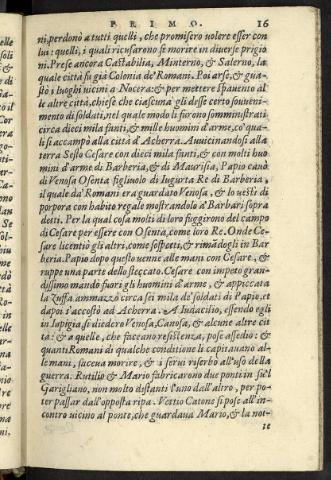 PRIMO. 16
ni, perdonò a tutti quelli, che promisero volere esser con
lui: quelli, i quali ricusarono fe morire in diverse prigio
ni. Prese ancora Castabilia, Minterno, & Salerno, la
quale città fu già Colonia de' Romani. Poi arse, & gua-
stò i luoghi vicini a Nocera: & per mettere spavento al
le altre città, chiese che ciascuna gli desse certo sovveni-
mento di soldati, nel quale modo li furono somministrati
circa dieci mila fanti, & mille huomini d'arme, co' qua-
li si accampò alla città d'Acherra. Avvicinandosi alla
terra Sesto Cesare con dieci mila fanti, & con molti huo
mini d'arme di Barberia, & di Maurisia, Papio cavò
di Venosa Osenta figliuolo di Iugurta Re di Barberia,
il quale da' Romani era guardato Venosa, & lo vestì di
porpora con habito regale mostrandolo a' Barbari sopra
detti. Per la qual cosa molti di loro fuggirono del campo
di Cesare per essere con Osenta, come loro Re. Onde Ce-
sare licentiò gli altri, come sospetti, & rimãdogli in Bar
beria. Papio dopo questo venne alle mani con Cesare, &
ruppe una parte dello steccato. Cesare con impeto gran-
dissimo mandò fuori gli huomini d'arme, & appiccata
la zuffa ammazzò circa sei mila de' soldati di Papio, et
dapoi s'accostò ad Acherra. A Iudacilio, essendo egli
in Iapigia si diedero Venosa, Canosa, & alcune altre cit
tà: & a quelle, che faceano resistenza, pose assedio: &
quanti Romani di qualche conditione li capitavano al-
le mani, faceva morire, & i servi riserbò all'uso della
guerra. Rutilio & Mario fabricarono due ponti in su'l
Garigliano, non molto distanti l'uno dall'altro, per po-
ter passar dall'opposta ripa. Vettio Catone si pose all'in-
contro vicino al ponte, che guardava Mario, & la not-
te